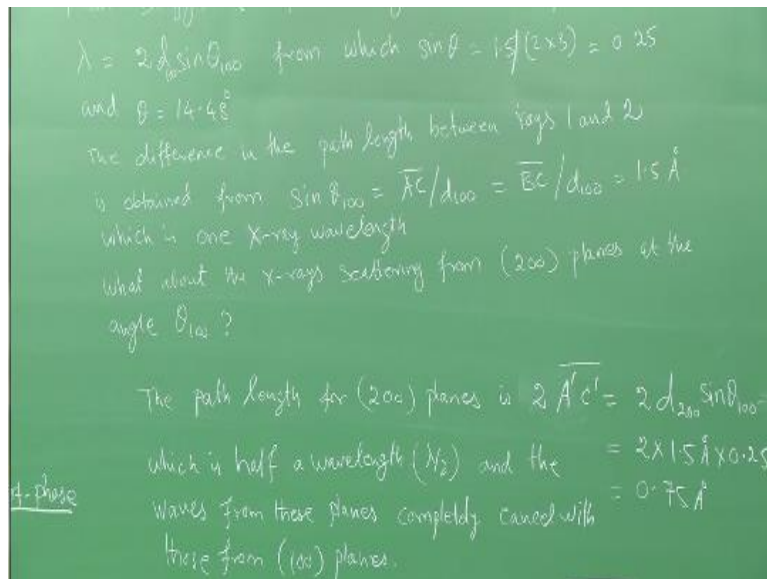 λ = 2d₁₀₀sinθ₁₀₀ from which sinθ = 1.5/(2×3) = 0.25
and θ = 14.48°
The difference in the path length between rays 1 and 2
is obtained from sinθ₁₀₀ = A̅C̅/d₁₀₀ = B̅C̅/d₁₀₀ = 1.5 Å
which is one X-ray wavelength
What about the X-rays scattering from (200) planes at the
angle θ₁₀₀ ?
The path length for (200) planes is 2 A̅'̅C̅'̅ = 2 d₂₀₀ sinθ₁₀₀ =
which is half a wavelength (λ/2) and the = 2×1.5Å×0.25
waves from these planes completely cancel with = 0.75Å
those from (100) planes.
f-phase